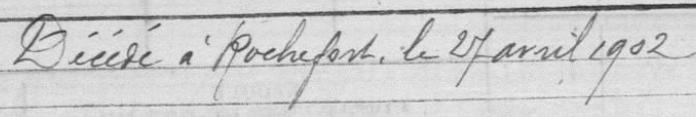 Décédé à Rochefort, le 27 avril 1902